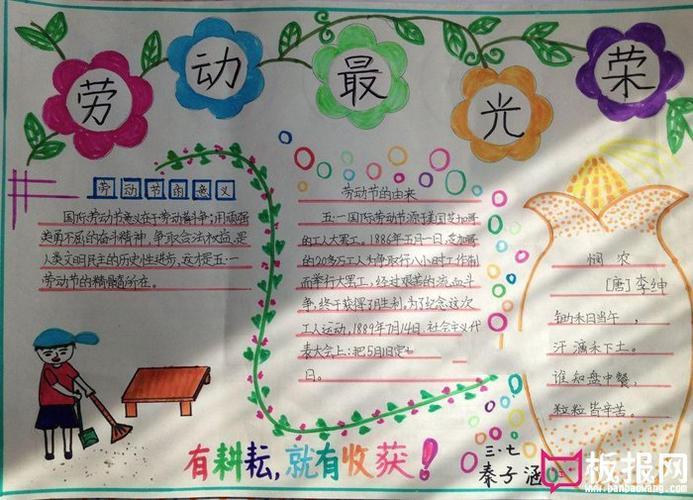 劳动最光荣
劳动节的意义
国际劳动节意义在于劳动者斗争;用顽强
英勇不屈的奋斗精神,争取合法权益,是
人类文明民主的历史性进步,这才是五·一
劳动节的精髓所在。
劳动节的由来
五·一国际劳动节源于美国芝加哥
的工人大罢工。1886年五月一日,芝加哥
的20多万工人为争取行八小时工作制
而举行大罢工,经过艰苦的流血斗
争,终于获得了胜利。为了纪念这次
工人运动,1889年7月14日,社会主义代
表大会上:把5月1日定
日。
悯农
[唐]李绅
锄禾日当午,
汗滴禾下土。
谁知盘中餐,
粒粒皆辛苦。
有耕耘,就有收获!
三·七
秦子涵
板报网
www.banbaowang.com